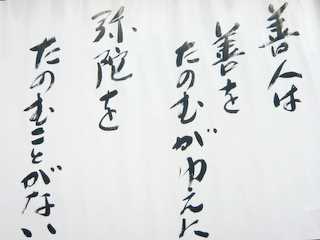 善人は
善を
たのむがゆえに
弥陀を
たのむことがない